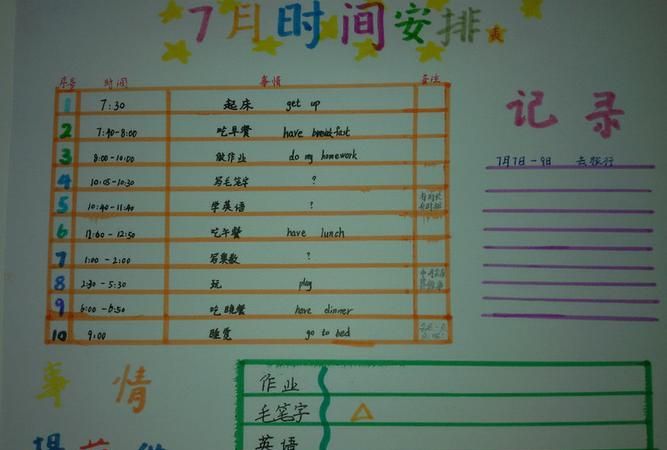 7月时间安排表
序号 时间 事情 备注
1 7:30 起床 get up
2 7:40-8:00 吃早餐 have breakfast
3 8:00-10:00 做作业 do my homework
4 10:05-10:30 写毛笔字 ?
5 10:40-11:40 学英语 ?
6 吃午餐 have lunch
7 1:00-2:00 写奥数 ?
8 2:30-5:30 玩 play
9 6:00-6:50 吃晚餐 have dinner
10 9:00 睡觉 go to bed
记录
7月7日-9日 去旅行
事情
作业
毛笔字
英语